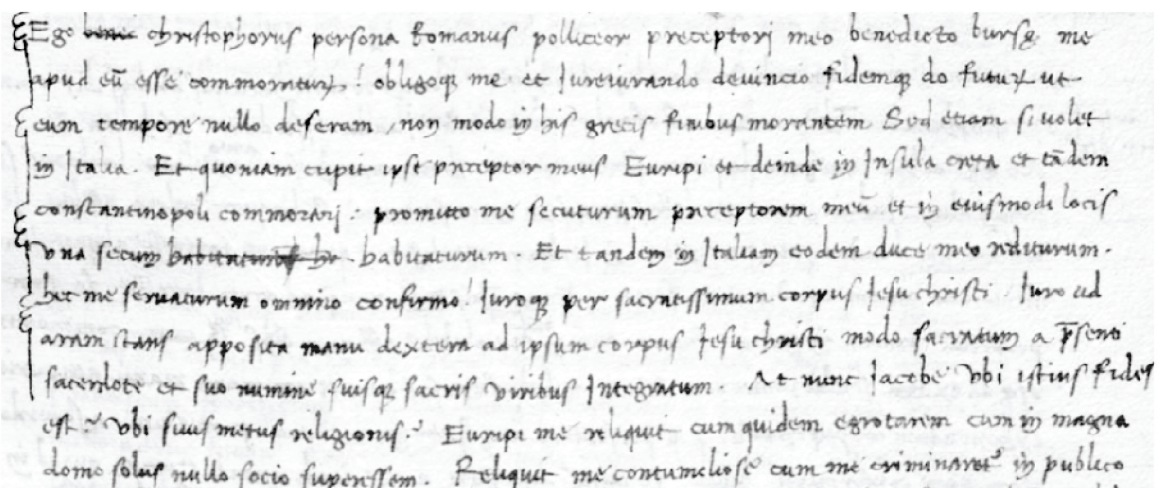 Ego benei christophorus persona Romanus polliceor preceptori meo benedicto bursę me
apud eū esse commoraturꝝ : obligoqꝫ me et Iureiurando devincio fidemqꝫ do futurꝝ ut
eum tempore nullo deseram , non modo in his grecis finibus morantem Sed etiam si volet
in Italia . Et quoniam cupit ipse preceptor meus Euripi et deinde in Insula creta et tādem
constantinopoli commorari : promitto me secuturum preceptorem meū et in eiusmodi locis
vna secum habitaturum . Et tandem in Italiam eodem duce meo rediturum .
hec me servaturum omnino confirmo : Iuroqꝫ per sacratissimum corpus Jesu christi . Iuro ad
aram stans apposita manu dextera ad ipsum corpus Jesu christi modo sacratum a p̄senti
sacerdote et suo numine suisqꝫ sacris viribus Integratum . At nunc Iacobe vbi istius fides
est ? vbi suus metus religionis ? Euripi me reliquit cum quidem egrotarem cum in magna
domo solus nullo socio superessem . Reliquit me contumeliose cum me criminaret᷑ in publico